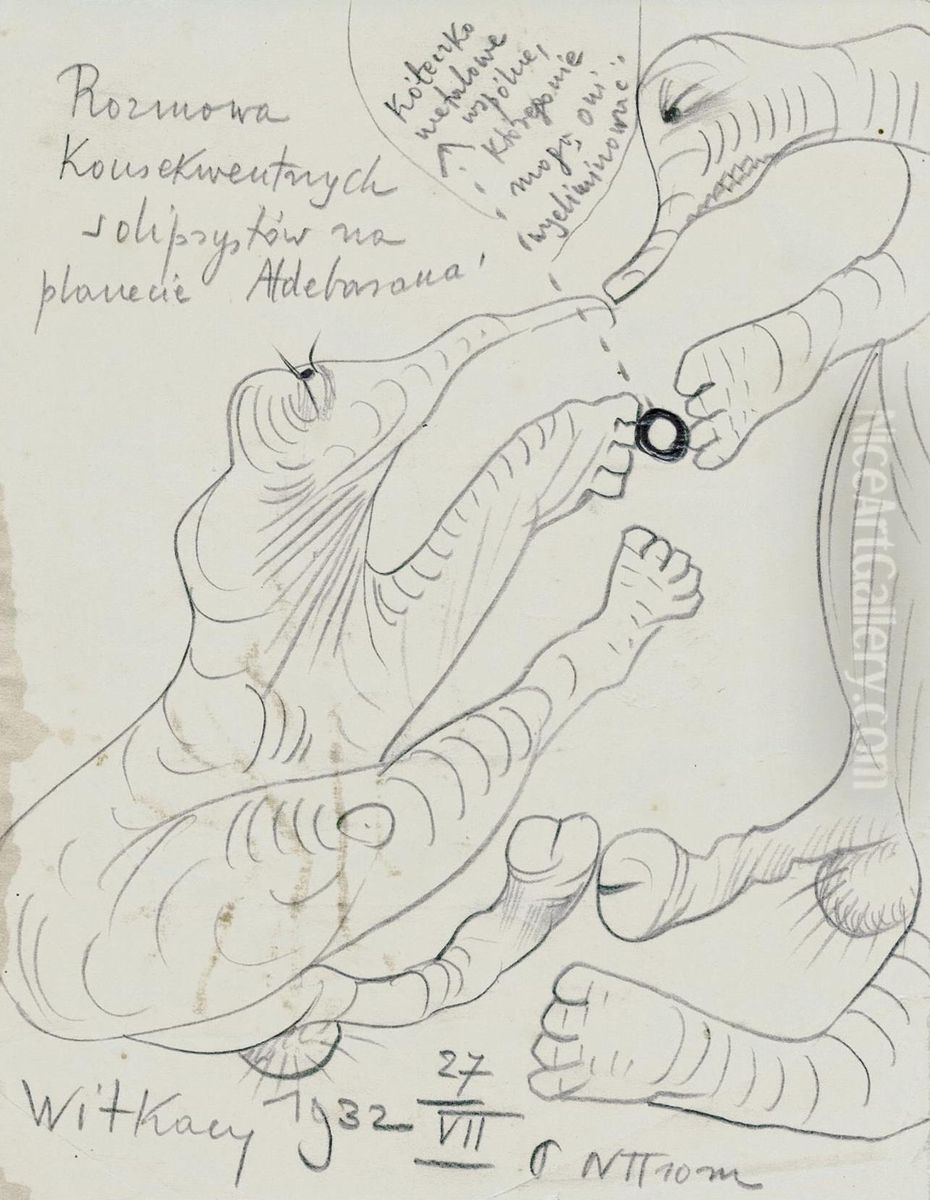 Rozmowa
Konsekwentnych
solipsystów na
planecie Aldebarana
Kółeczko
metalowe
wspólne,
którego nie
mogą oni
wyeliminować
NiceArtGallery.com
Witkacy 1932 27
VII
NΠ